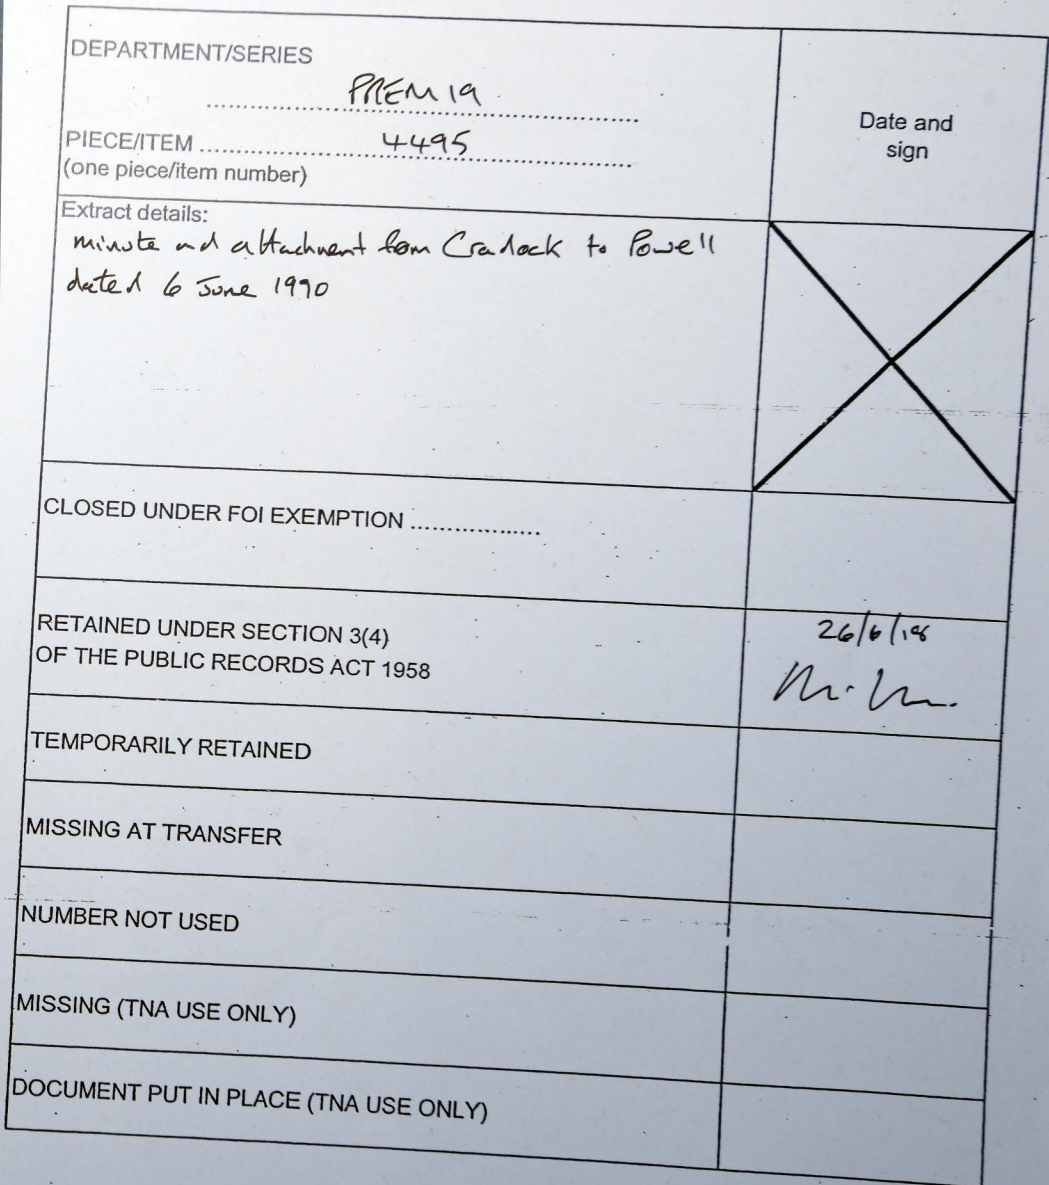 DEPARTMENT/SERIES
PREM 19
PIECE/ITEM 4495
(one piece/item number)
Date and
sign
Extract details:
minute and attachment from Cradock to Powell
dated 6 June 1990
CLOSED UNDER FOI EXEMPTION ..................
RETAINED UNDER SECTION 3(4)
OF THE PUBLIC RECORDS ACT 1958
26/6/18
TEMPORARILY RETAINED
MISSING AT TRANSFER
NUMBER NOT USED
MISSING (TNA USE ONLY)
DOCUMENT PUT IN PLACE (TNA USE ONLY)